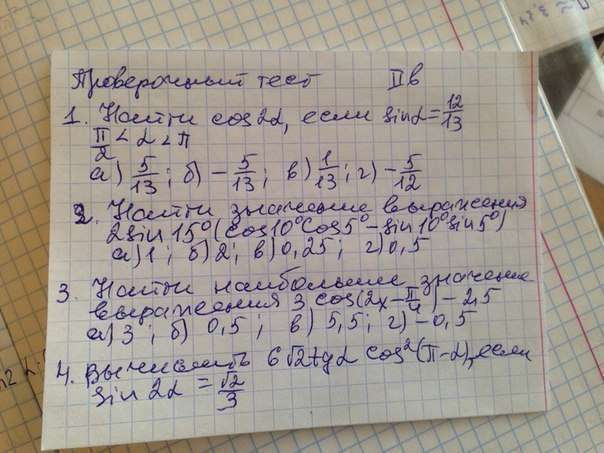 Проверочный тест IIв
1. Найти cos2α, если sinα = 12/13
π/2 < α < π
а) 5/13; б) - 5/13; в) 1/13; г) - 5/12
2. Найти значение выражения
2sin15°(cos10°cos5° - sin10°sin5°)
а) 1; б) 2; в) 0,25; г) 0,5
3. Найти наибольшее значение
выражения 3 cos(2x - π/4) - 2,5
а) 3; б) 0,5; в) 5,5; г) - 0,5
4. Вычислить 6√2 tgα cos²(π-α), если
sin 2α = √2/3